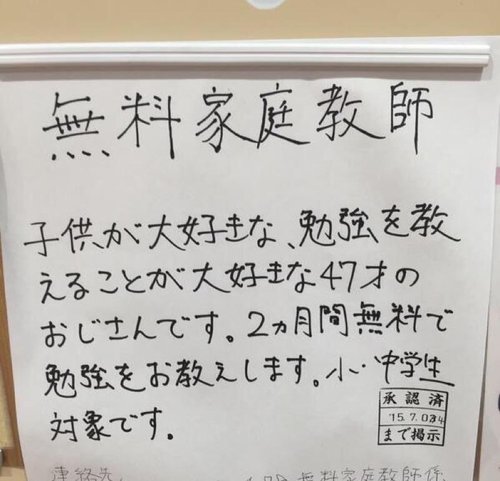 無料家庭教師
子供が大好きな、勉強を教
えることが大好きな47才の
おじさんです。2ヵ月間無料で
勉強をお教えします。小・中学生
対象です。
承認済
15.7.034
まで掲示
連絡先
無料家庭教師係